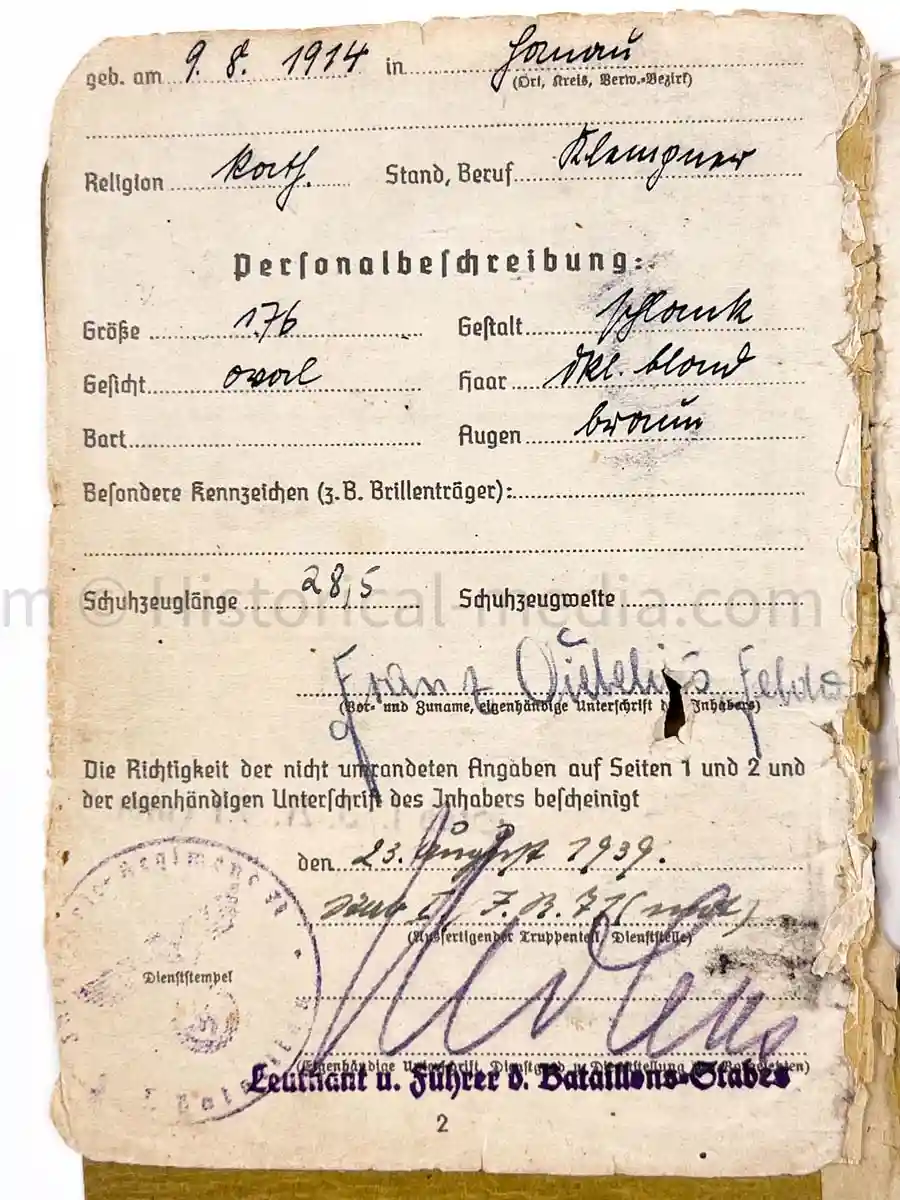 geb. am 9. 8. 1914 in Hanau
(Ort, Kreis, Verw.-Bezirk)
Religion kath. Stand, Beruf Klempner
Personalbeschreibung:
Größe 176 Gestalt schlank
Gesicht oval Haar dkl. blond
Bart Augen braun
Besondere Kennzeichen (z. B. Brillenträger):
m © Historical-media.com ©
Schuhzeuglänge 28,5 Schuhzeugweite
Franz
(Vor- und Zuname, eigenhändige Unterschrift des Inhabers)
Die Richtigkeit der nicht umrandeten Angaben auf Seiten 1 und 2 und
der eigenhändigen Unterschrift des Inhabers bescheinigt
den 23. August 1939.
Stab I. J. R. 71 (mot)
(Ausfertigender Truppenteil, Dienststelle)
Dienststempel
(Eigenhändige Unterschrift, Dienstgrad u. Dienststellung des Vorgesetzten)
Leutnant u. Führer d. Bataillons-Stabes
2